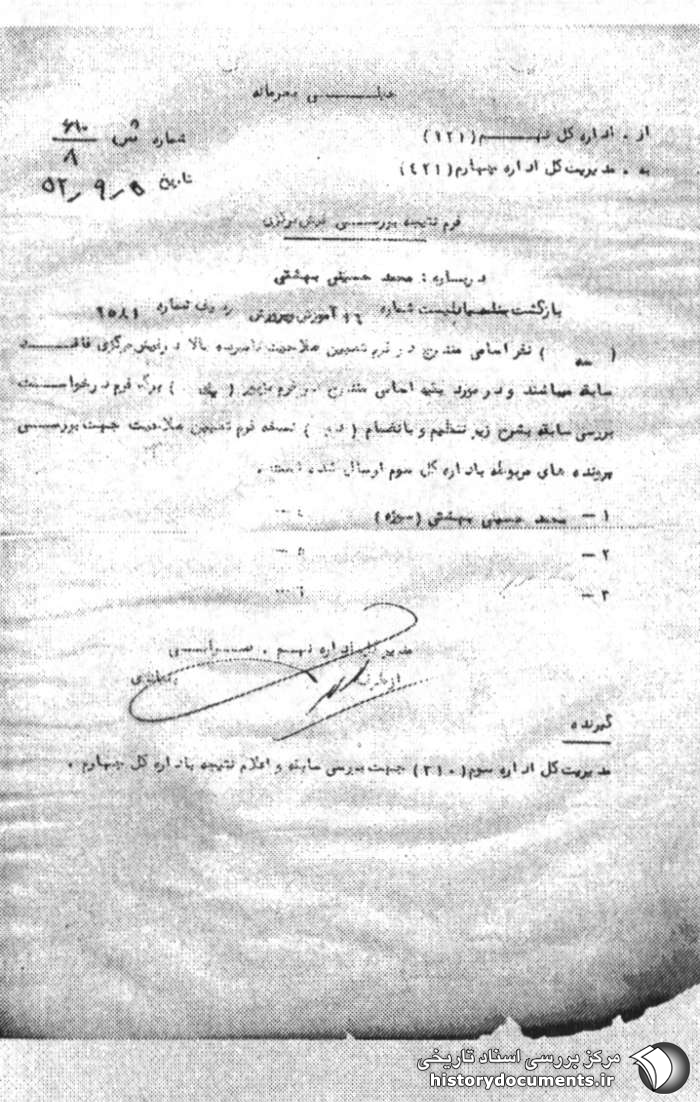 خیلی محرمانه
از . اداره کل نهم (۱۲۱)
شماره
به . مدیریت کل اداره چهارم (۴۲۱)
تاریخ ۵۲٫۹٫۵
فرم نتیجه بررسی مرکزی
درباره : محمد حسینی بهشتی
بازگشت شماره ۱۶ آموزش وپرورش ردیف شماره
( سه ) نفر اسامی مندرج در فرم تعیین صلاحیت نامبرده بالا در مرکزی فاقد
سابقه میباشند و در مورد بقیه اسامی مندرج فرم مزبور ( یک ) برگ فرم درخواست
بررسی سابقه بشرح زیر تنظیم و بانضمام ( ) نسخه فرم تعیین صلاحیت جهت بررسی
پرونده های مربوطه باداره کل سوم ارسال شده است .
۱ – محمد حسینی بهشتی (سوژه)
۴ –
۲ –
۵ –
۳ –
۶ –
مدیر کل اداره نهم .
از طرف
گیرنده
مدیریت کل اداره سوم (۳۱۰) جهت بررسی سابقه و اعلام نتیجه باداره کل چهارم .
مرکز بررسی اسناد تاریخی
historydocuments.ir